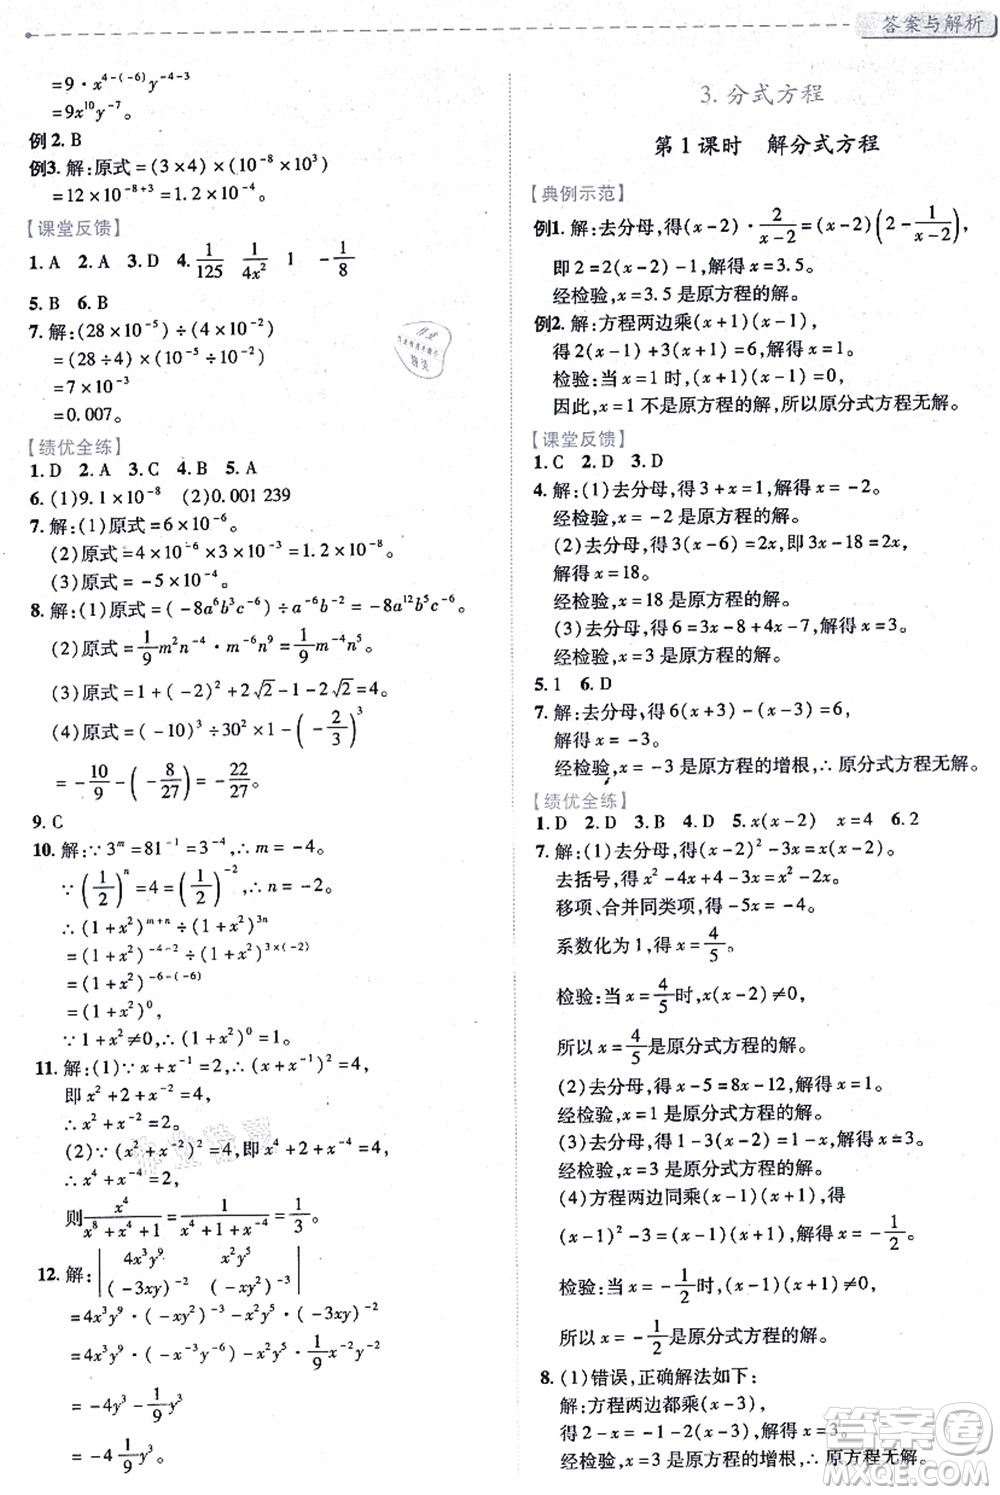 答案与解析
=9·x^{4-(-6)}y^{-4-3}
=9x^{10}y^{-7}。
例2. B
例3. 解:原式=(3×4)×(10^{-8}×10^3)
=12×10^{-8+3}=1.2×10^{-4}。
【课堂反馈】
1. A 2. A 3. D 4. 1/125 1/(4x^2) 1 -1/8
5. B 6. B
7. 解:(28×10^{-5})÷(4×10^{-2})
=(28÷4)×(10^{-5}÷10^{-2})
=7×10^{-3}
=0.007。
【绩优全练】
1. D 2. A 3. C 4. B 5. A
6. (1)9.1×10^{-8} (2)0.001 239
7. 解:(1)原式=6×10^{-2}。
(2)原式=4×10^{-6}×3×10^{-2}=1.2×10^{-8}。
(3)原式=-5×10^{-4}。
8. 解:(1)原式=(-8a^6b^3c^{-6})÷a^{-6}b^{-2}=-8a^{12}b^5c^{-6}。
(2)原式=1/9 m^2n^{-4}·m^{-6}n^9=1/9 m^{-4}n^5。
(3)原式=1+(-2)^2+2√2-1-2√2=4。
(4)原式=(-10)^3÷30^2×1-(-2/3)^3
=-10/9-(-8/27)=-22/27。
9. C
10. 解:∵3^m=81^{-1}=3^{-4},∴m=-4。
∵(1/2)^n=4=(1/2)^{-2},∴n=-2。
∴(1+x^2)^{m+n}÷(1+x^2)^{3n}
=(1+x^2)^{-4-2}÷(1+x^2)^{3×(-2)}
=(1+x^2)^{-6-(-6)}
=(1+x^2)^0,
∵1+x^2≠0,∴(1+x^2)^0=1。
11. 解:(1)∵x+x^{-1}=2,∴(x+x^{-1})^2=4,
即x^2+2+x^{-2}=4,
∴x^2+x^{-2}=2。
(2)∵(x^2+x^{-2})^2=4,即x^4+2+x^{-4}=4,
∴x^4+x^{-4}=2,
则x^4/(x^8+x^4+1)=1/(x^4+1+x^{-4})=1/3。
12. 解:|4x^3y^9 x^2y^5|
|(-3xy)^{-2} (-xy^2)^{-3}|
=4x^3y^9·(-xy^2)^{-3}-x^2y^5·(-3xy)^{-2}
=4x^3y^9·(-x^{-3}y^{-6})-x^2y^5·1/9 x^{-2}y^{-2}
=-4y^3-1/9 y^3
=-4 1/9 y^3。
3. 分式方程
第1课时 解分式方程
【典例示范】
例1. 解:去分母,得(x-2)·2/(x-2)=(x-2)(2-1/(x-2)),
即2=2(x-2)-1,解得x=3.5。
经检验,x=3.5是原方程的解。
例2. 解:方程两边乘(x+1)(x-1),
得2(x-1)+3(x+1)=6,解得x=1。
检验:当x=1时,(x+1)(x-1)=0,
因此,x=1不是原方程的解,所以原分式方程无解。
【课堂反馈】
1. C 2. D 3. D
4. 解:(1)去分母,得3+x=1,解得x=-2。
经检验,x=-2是原方程的解。
(2)去分母,得3(x-6)=2x,即3x-18=2x,
解得x=18。
经检验,x=18是原方程的解。
(3)去分母,得6=3x-8+4x-7,解得x=3。
经检验,x=3是原方程的解。
5. 1 6. D
7. 解:去分母,得6(x+3)-(x-3)=6,
解得x=-3。
经检验,x=-3是原方程的增根,∴原分式方程无解。
【绩优全练】
1. D 2. D 3. B 4. D 5. x(x-2) x=4 6. 2
7. 解:(1)去分母,得(x-2)^2-3x=x^2-2x。
去括号,得x^2-4x+4-3x=x^2-2x。
移项、合并同类项,得-5x=-4。
系数化为1,得x=4/5。
检验:当x=4/5时,x(x-2)≠0,
所以x=4/5是原分式方程的解。
(2)去分母,得x-5=8x-12,解得x=1。
经检验,x=1是原分式方程的解。
(3)去分母,得x^2-9=x^2-3x,解得x=3。
经检验,x=3是原分式方程的解。
(4)方程两边同乘(x-1)(x+1),得
(x-1)^2-3=(x-1)(x+1),解得x=-1/2。
检验:当x=-1/2时,(x-1)(x+1)≠0,
所以x=-1/2是原分式方程的解。
8. (1)错误,正确解法如下:
解:方程两边都乘(x-3),
得2-x=-1-2(x-3),解得x=3。
经检验,x=3是原方程的增根,∴原方程无解。
答案圈
MXQE.COM